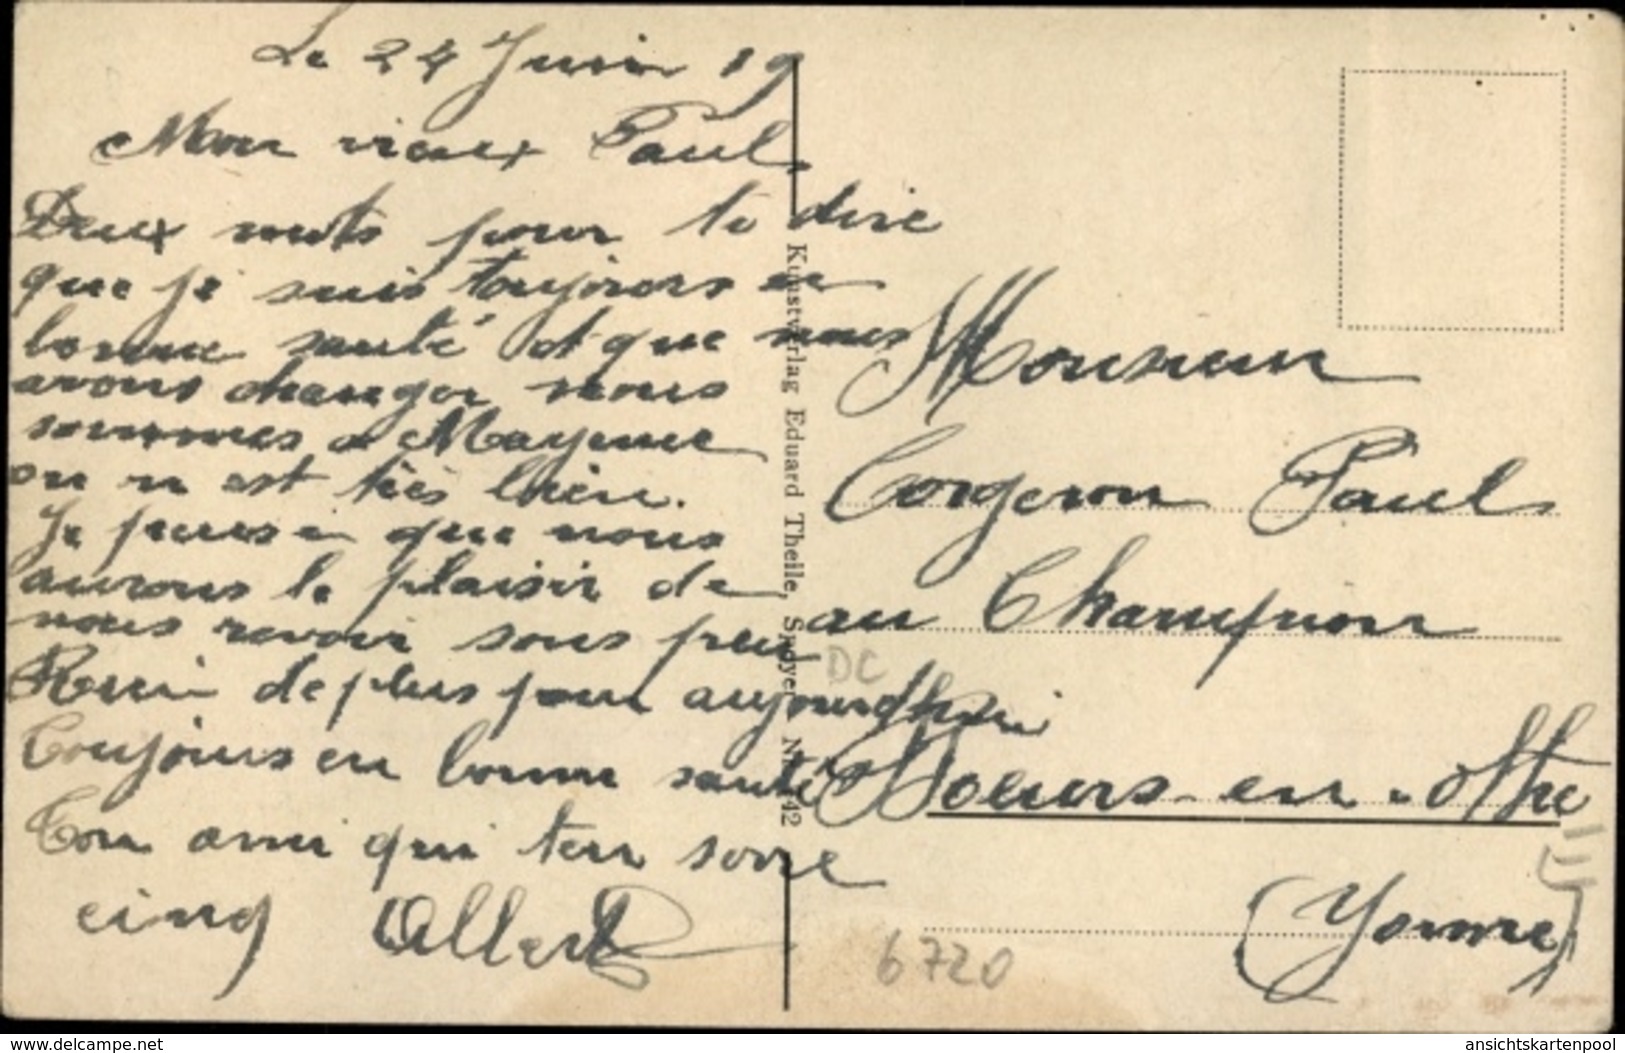 Le 24 Juin 19
Mon vieux Paul,
Deux mots pour te dire
que je suis toujours en
bonne santé et que nous
avons changer nous
sommes a Mayence
on n est très bien.
Je pense que nous
aurons le plaisir de
nous revoir sous peu
Rien de plus pour aujourdhui
Toujours en bonne santé
Ton ami qui ten serre
cinq Albert
Kunstverlag Eduard Theile, Speyer Nr. 42
Monsieur
Corgeron Paul
au Champion
DC
Boeurs-en-othe
(Yonne)
6720
www.delcampe.net
ansichtskartenpool